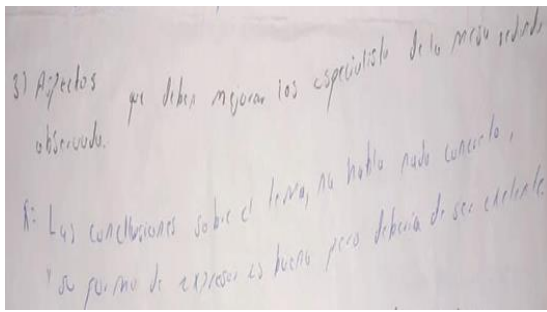 3) Aspectos que deben mejorar los especialista de la mesa redinda
observada.
R: Las conclusiones sobre el tema, no habla nada concreto,
y su forma de expresar es buena pero deberia de ser exelente.